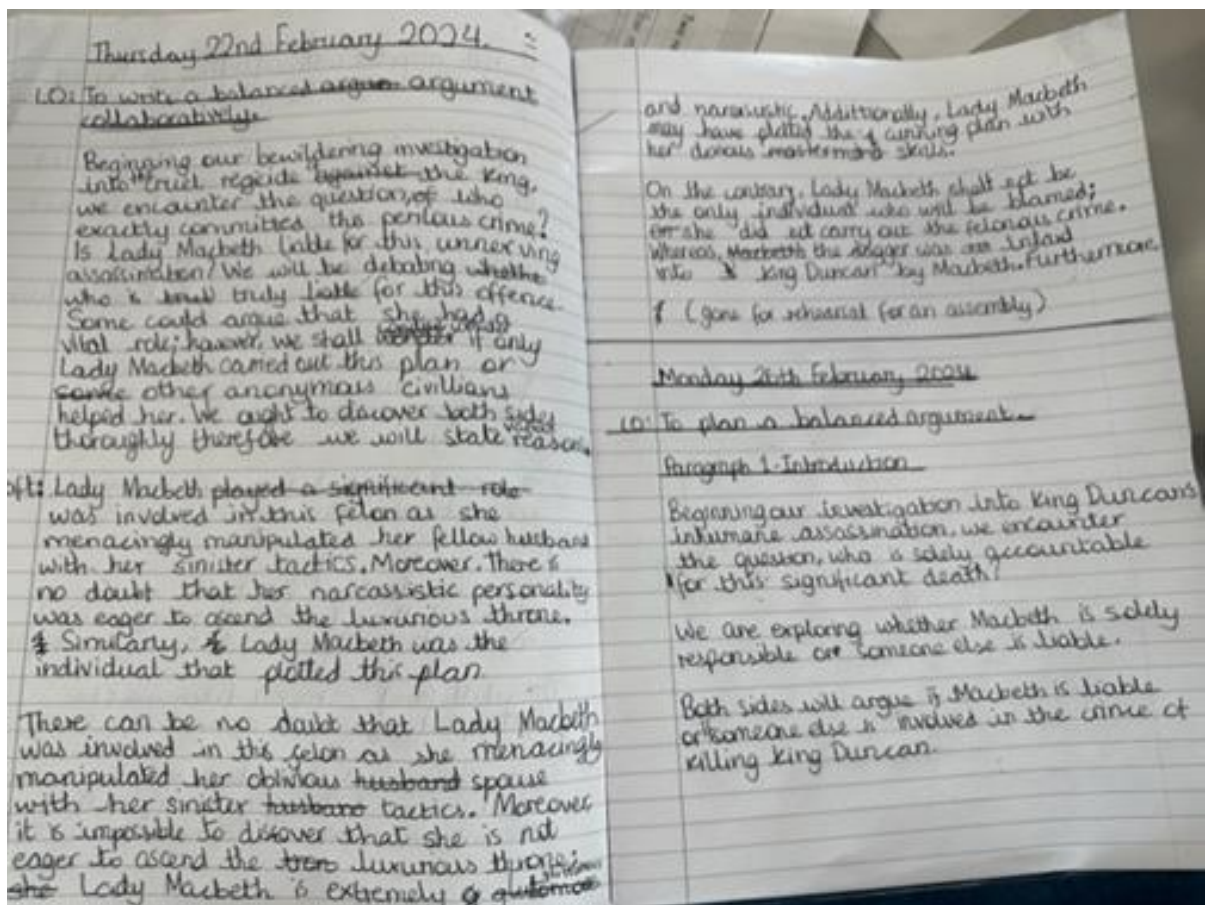 Thursday 22nd February 2024.
LO: To write a balanced argument
collaboratively.
Beginning our bewildering investigation
into cruel regicide against the King,
we encounter the question, of who
exactly committed this perilous crime?
Is Lady Macbeth liable for this unnerving
assassination? We will be debating
who is truly liable for this offence.
Some could argue that she had a
vital role; however, we shall if only
Lady Macbeth carried out this plan or
some other anonymous civillians
helped her. We ought to discover both sides
thoroughly therefore we will state reason.
Lady Macbeth played a significant role
was involved in this felon as she
menacingly manipulated her fellow husband
with her sinister tactics. Moreover, There is
no doubt that her narcassistic personality
was eager to ascend the luxurious throne.
Similarly, Lady Macbeth was the
individual that plotted this plan
There can be no doubt that Lady Macbeth
was involved in this felon as she menacingly
manipulated her oblivious husband spouse
with her sinister husband tactics. Moreover
it is impossible to discover that she is not
eager to ascend the luxurious throne;
she Lady Macbeth is extremely
and Addittionally, Lady Macbeth
may have plotted the cunning plan with
her mastermind skills.
On the contrary, Lady Macbeth shall not be
the only individual who will be blamed;
she did not carry out the felonous crime.
Whereas, Macbeth the dagger was
into King Duncan by Macbeth. Furthermore,
(gone for rehearsal for an assembly)
Monday 26th February 2024
LO: To plan a balanced argument.
Paragraph 1-Introduction
Beginning our investigation into King Duncan's
inhumane assassination, we encounter
the question, who is solely accountable
for this significant death?
We are exploring whether Macbeth is solely
responsible or someone else is liable.
Both sides will argue if Macbeth is liable
or someone else is involved in the crime of
killing King Duncan.